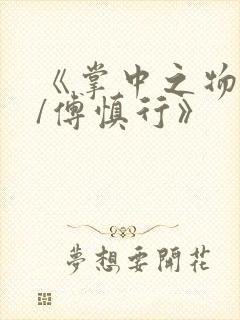 《掌中之物
/傅慎行》
夢想要開花